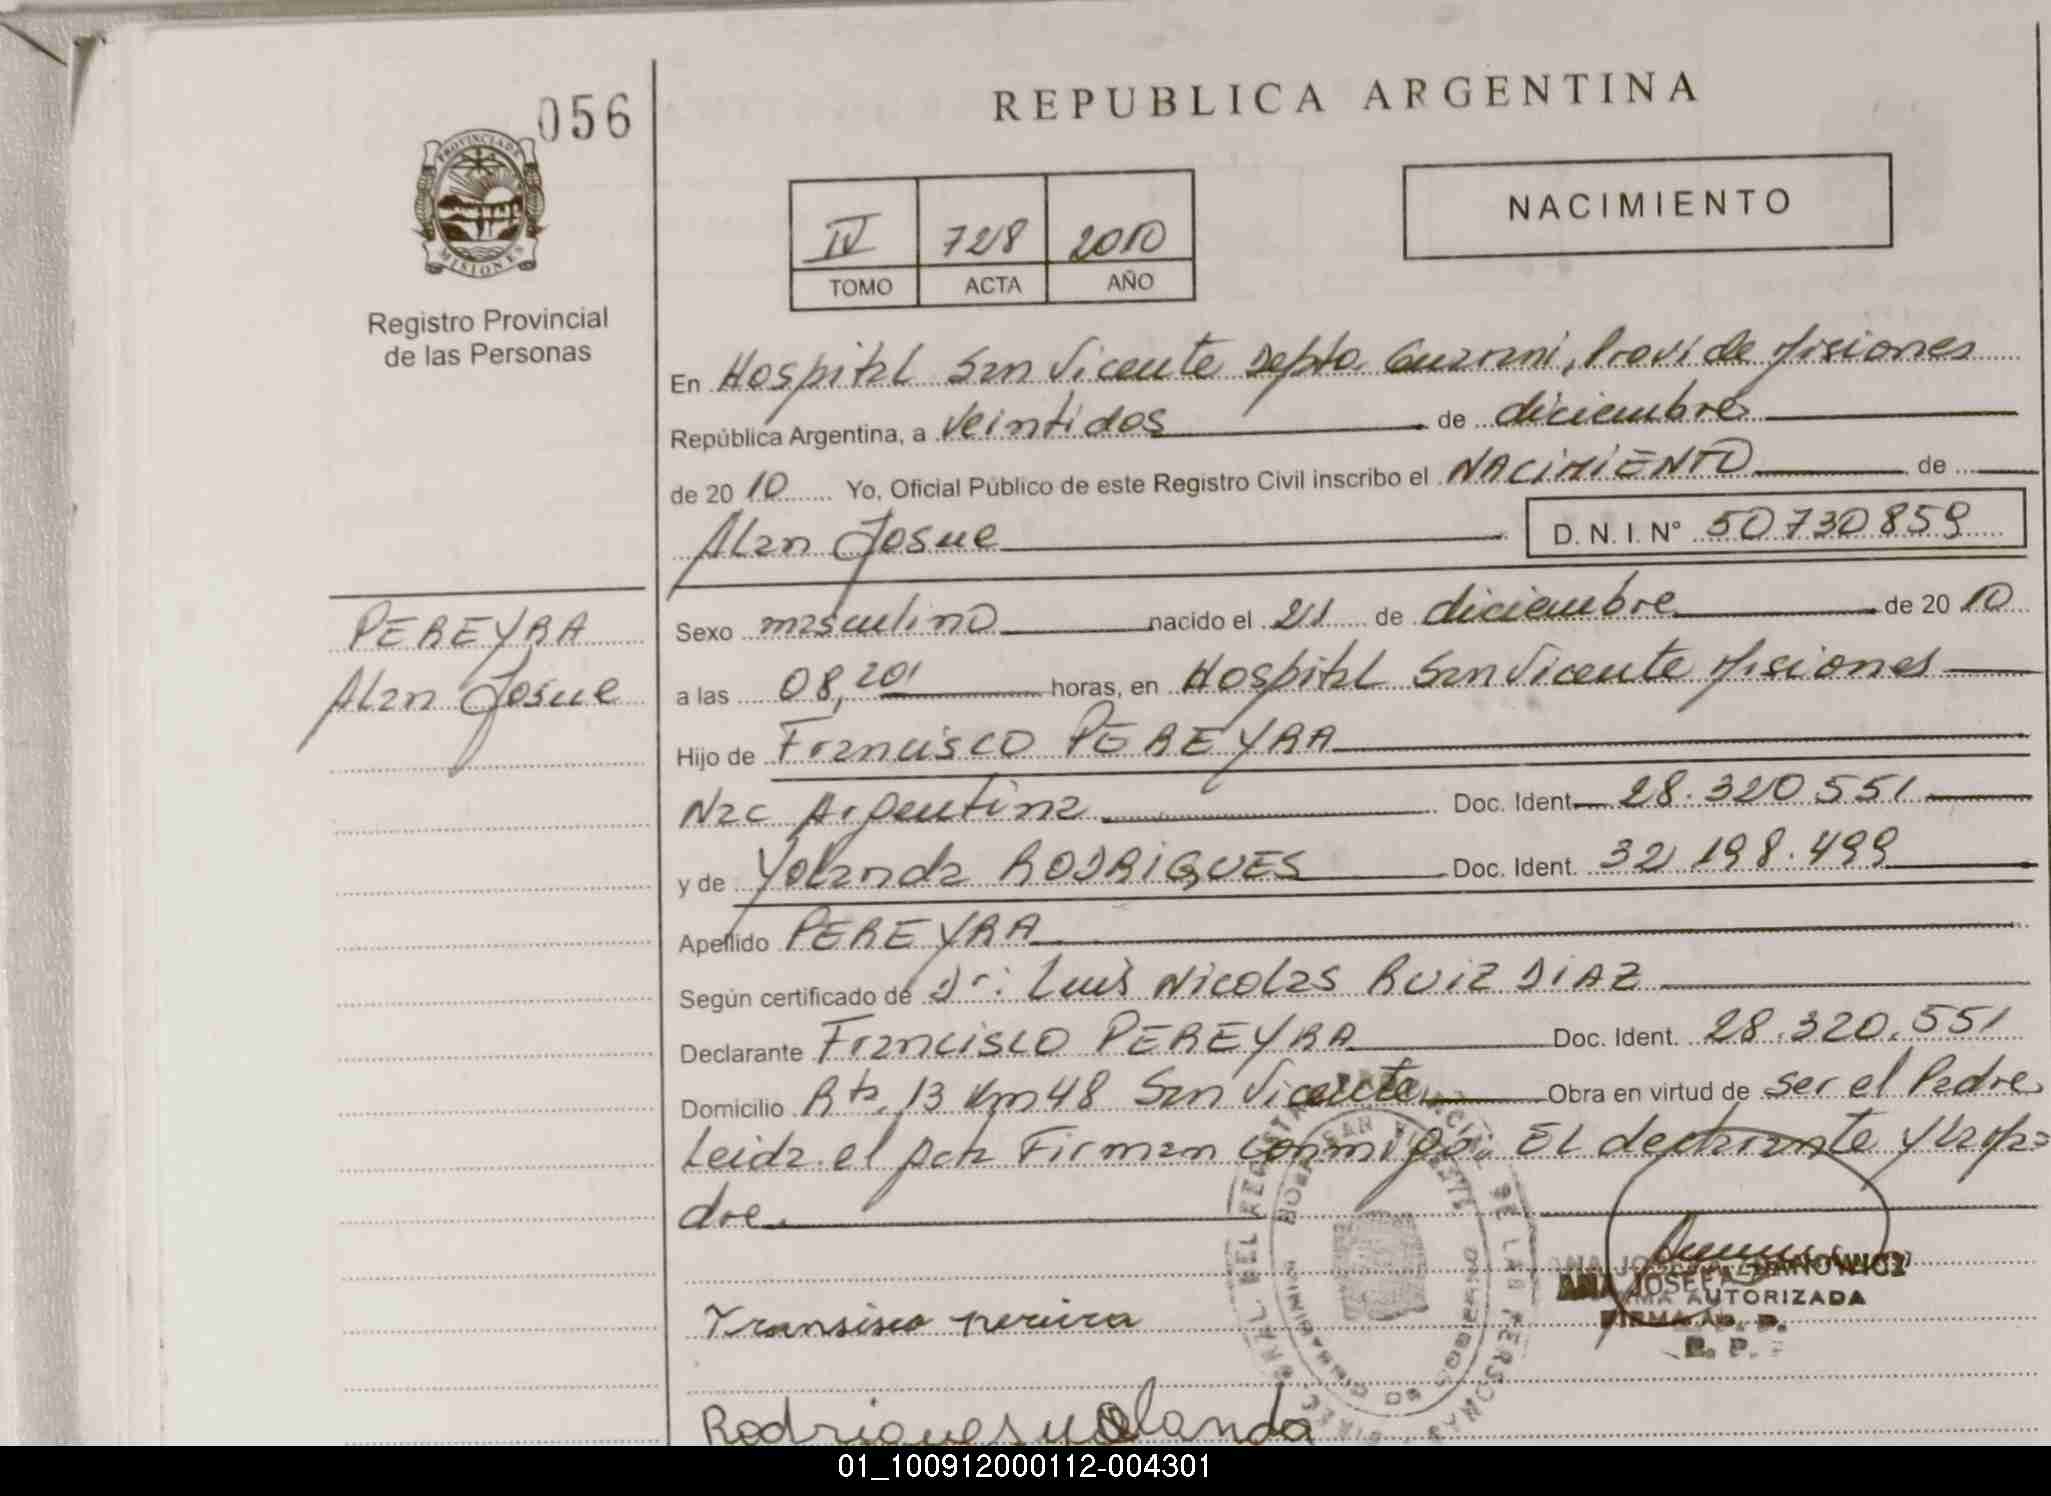 056
REPUBLICA ARGENTINA
PROVINCIA DE
MISIONES
Registro Provincial
de las Personas
IV 728 2010
TOMO ACTA AÑO
NACIMIENTO
En Hospital San Vicente Depto. Guarani, Provi de Misiones
República Argentina, a veintidos de diciembre
de 20 10 Yo, Oficial Público de este Registro Civil inscribo el NACIMIENTO de
Alan Josue D. N. I. N° 50730859
PEREYRA
Alan Josue
Sexo masculino nacido el 21 de diciembre de 20 10
a las 08,20' horas, en Hospital San Vicente Misiones
Hijo de Francisco PEREYRA
Nac Argentina Doc. Ident. 28.320.551
y de Yolanda RODRIGUES Doc. Ident. 32.198.499
Apellido PEREYRA
Según certificado de Dr: Luis Nicolas RUIZ DIAZ
Declarante Francisco PEREYRA Doc. Ident. 28.320.551
Domicilio Rta. 13 Km 48 San Vicente Obra en virtud de ser el Padre
Leida el Acta Firman conmigo: El declarante y la Ma=
dre
ANA JOSEFA
FIRMA AUTORIZADA
R. P.
Fransisco pereira
Rodrigues Yolanda
01_100912000112-004301